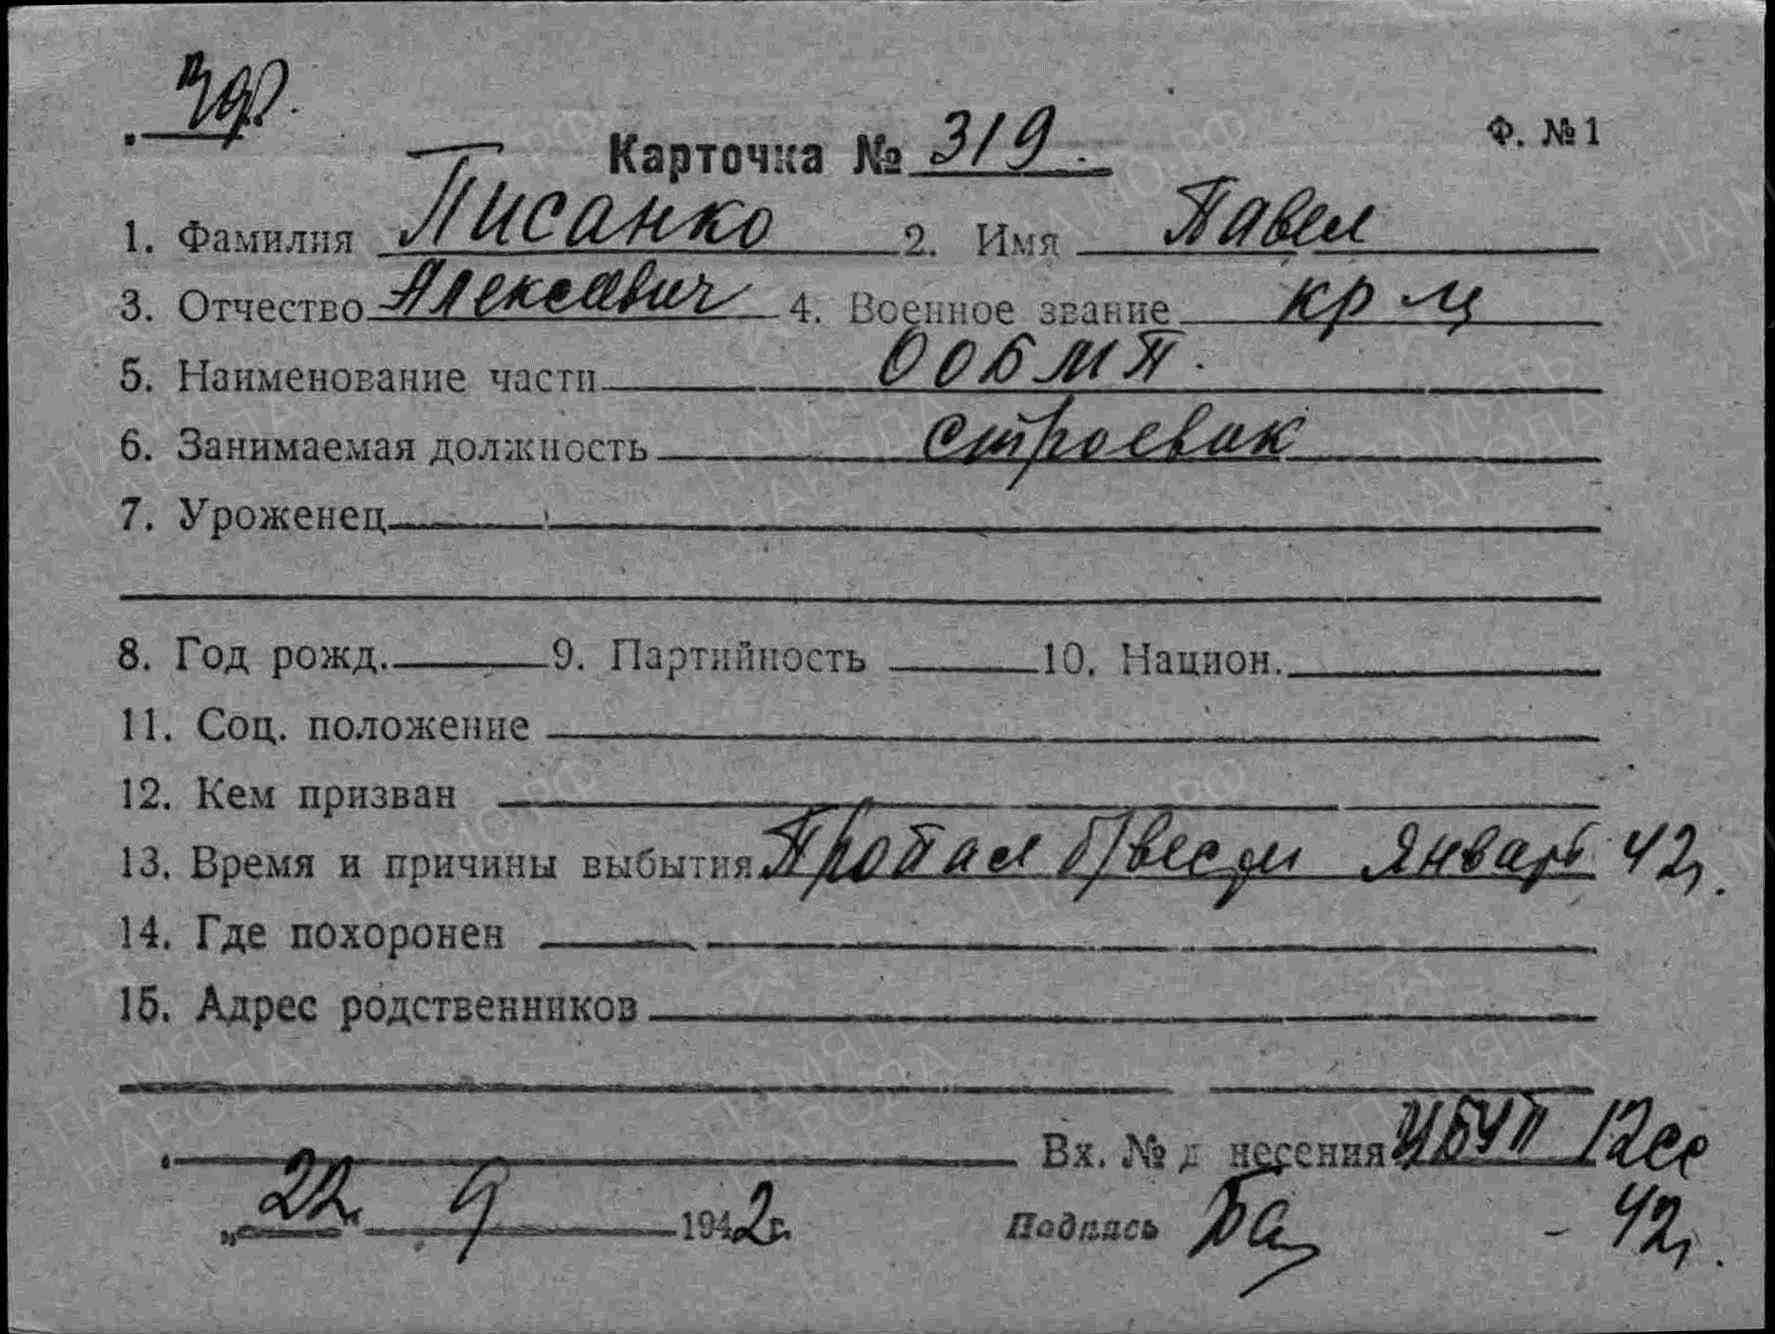 Карточка № 319. Ф. № 1
1. Фамилия Писанко 2. Имя Павел
3. Отчество Алексеевич 4. Военное звание кр-ц
5. Наименование части ООБМП.
6. Занимаемая должность строевик
7. Уроженец
8. Год рожд. 9. Партийность 10. Национ.
11. Соц. положение
12. Кем призван
13. Время и причины выбытия Пропал б/вести январь 42 г.
14. Где похоронен
15. Адрес родственников
Вх. № д несения 12сс
„22“ 9 1942 г. Подпись - 42 г.